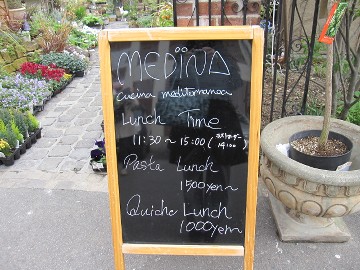 MEDÏNA
cucina mediterranea
Lunch Time
11:30 ~ 15:00 (ラストオーダー 14:00)
Pasta Lunch
1500yen~
Quiche Lunch
1000yen~